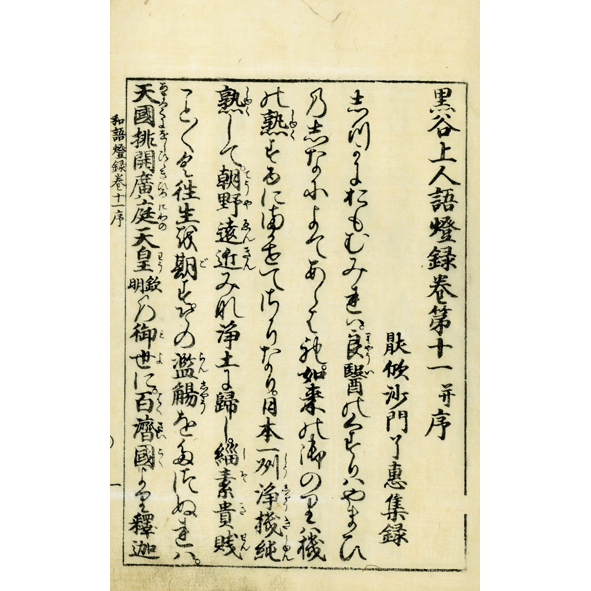 黒谷上人語燈録巻第十一并序
厭欣沙門了惠集録
しづかにおもむみれは良醫のくすりはやまひ
のしなによてあらはれ如来の御のりは機
の熟するにまかせてさかりなり日本一州浄機純
熟して朝野遠近みな浄土に歸し緇素貴賤
こと〳〵く往生を期すその濫觴をたつぬれは
天國排開廣庭天皇欽明の御世に百濟國より釋迦
和語燈録巻十一序 一